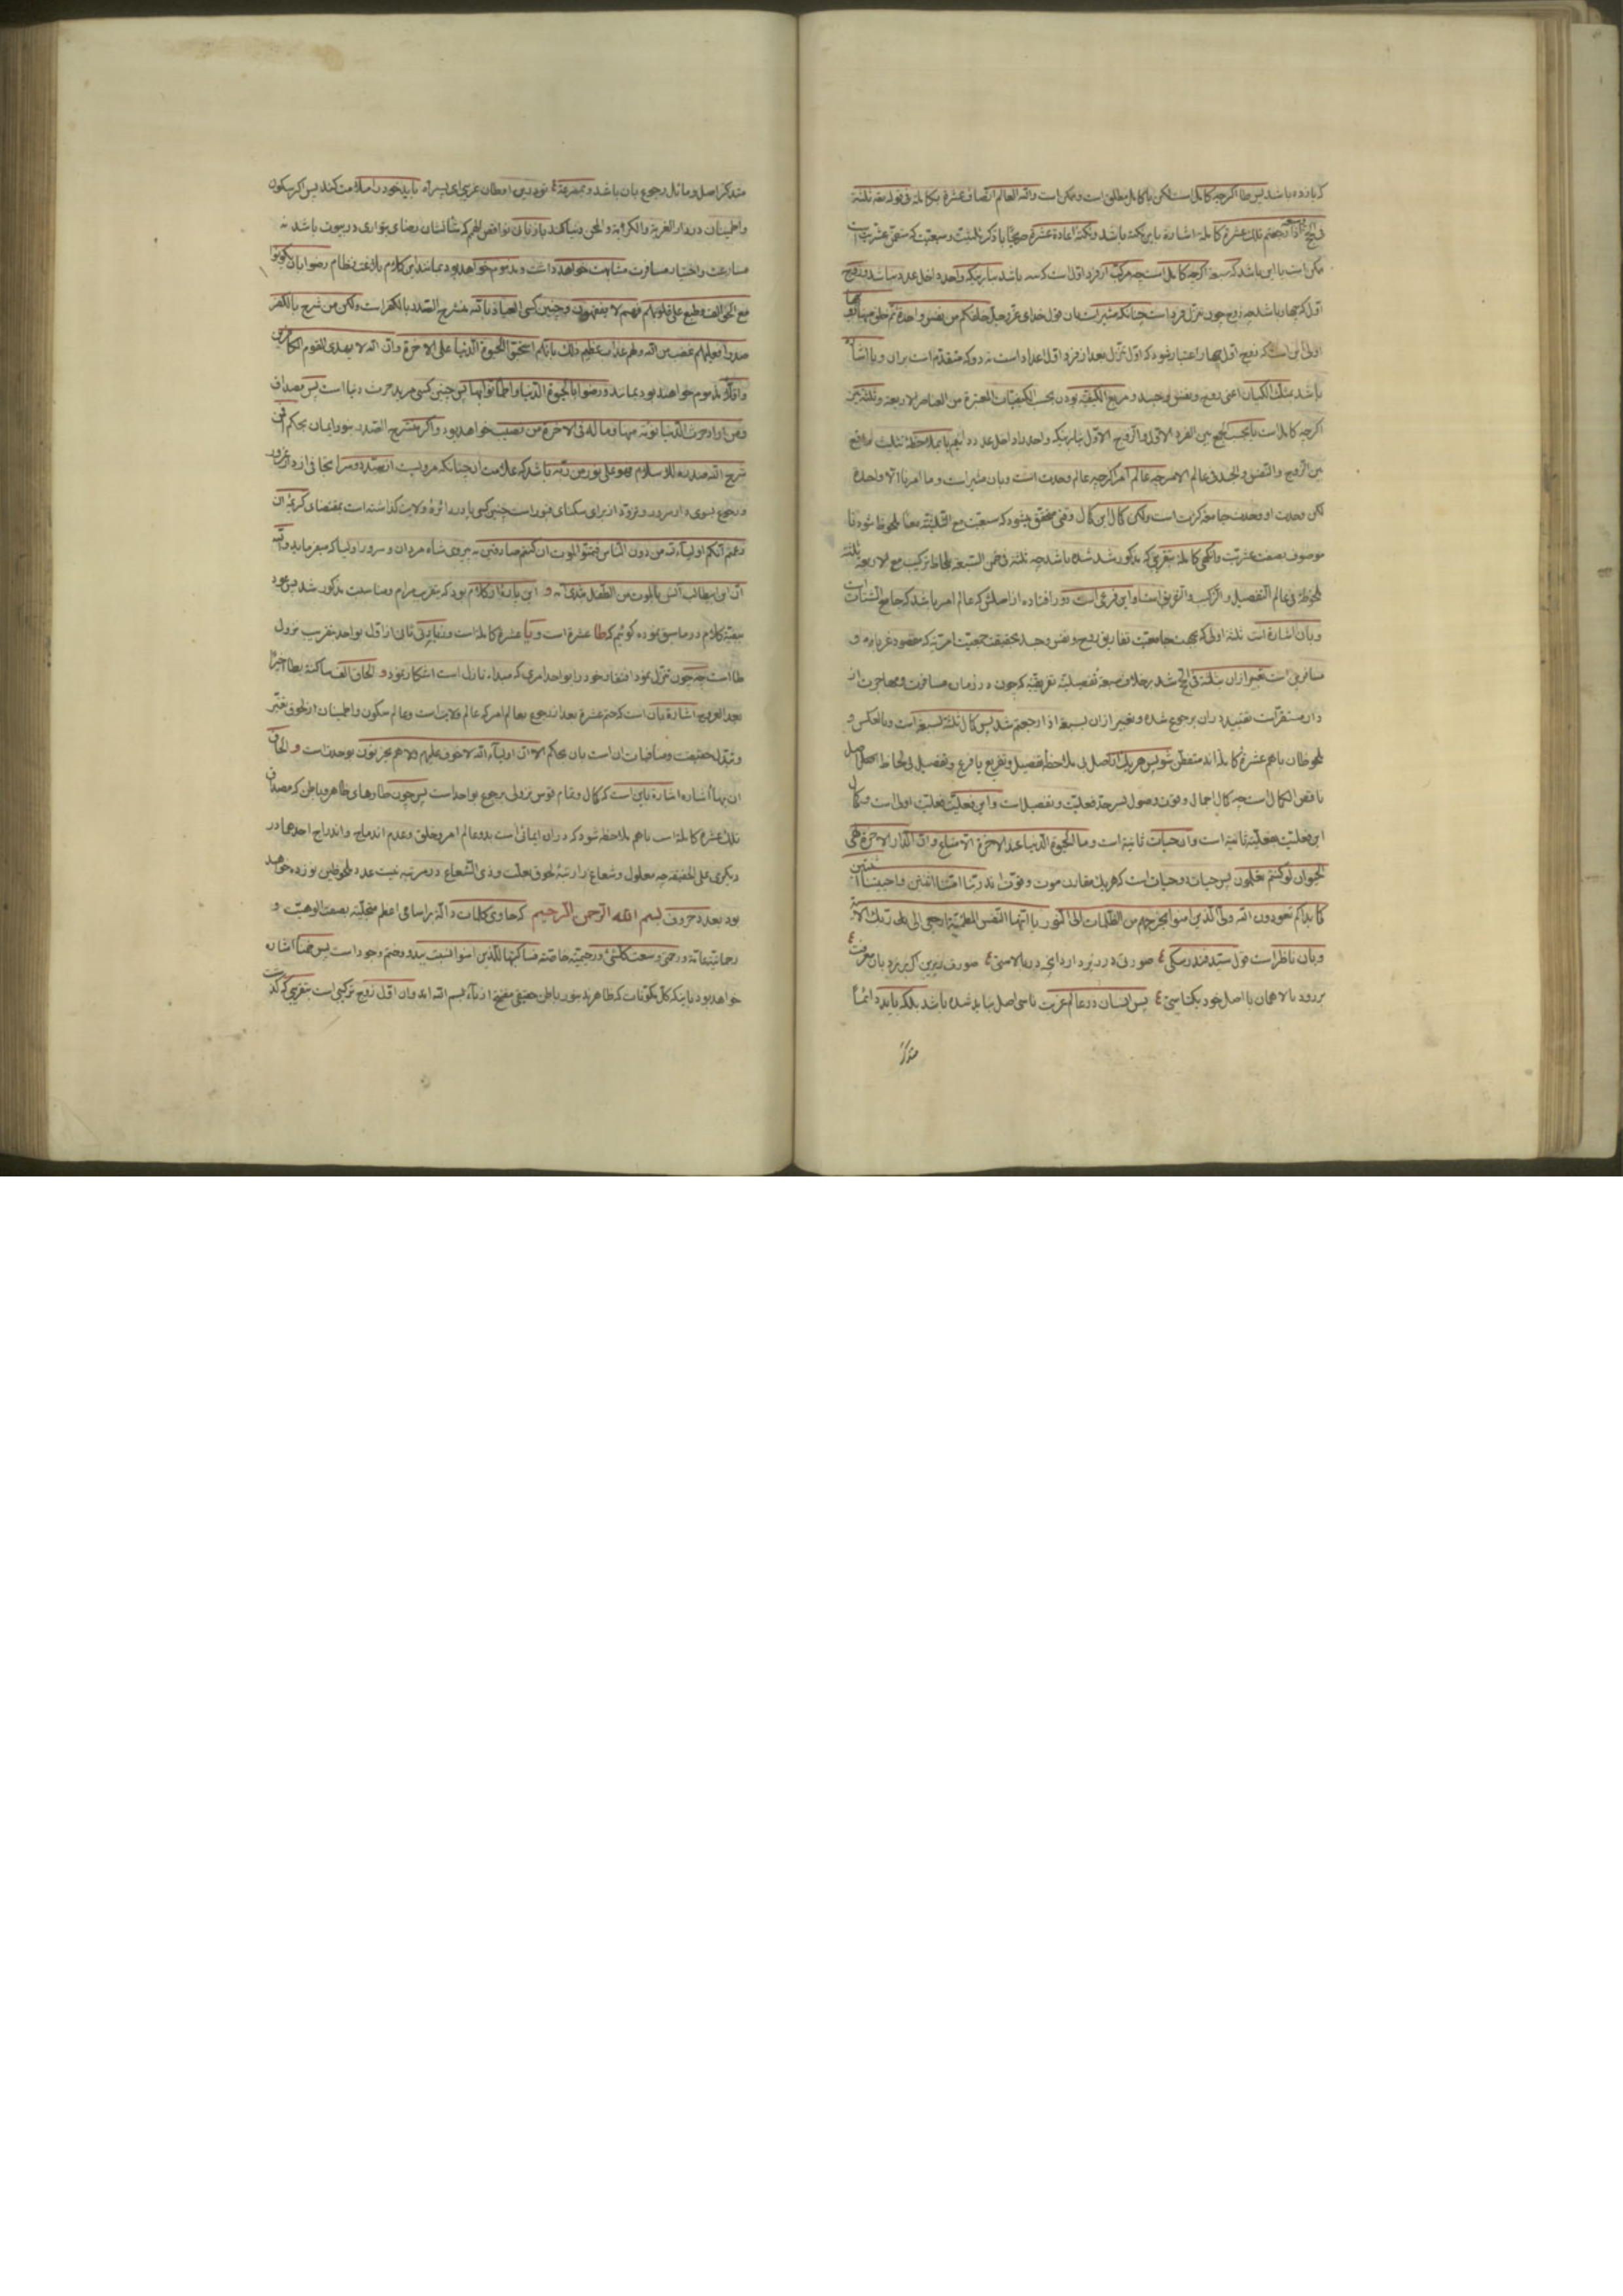 که یازده باشد پس طا اگرچه کامل است لکن با کامل مطلق است و ممکن است والله العالم اتصاف عشرة بکاملة در قوله ثلثة
فی الحج وسبعة اذا رجعتم تلک عشرة کاملة اشاره باین نکته باشد ونکته اعادة عشرة صریحاً با ذکر ثلثیت وسبعیت که متضمن عشریت است
ممکن است با این باشد که سبعه اگرچه کامل است چه مرکب از فرد اول است که سه باشد بنابر اینکه واحد داخل عدد نباشد وزوج
اول که چهار باشد چه زوج چون تنزل فرد است چنانکه مشیر است بآن قول خدای عز وجل خلقکم من نفس واحدة ثم خلق منها زوجها
اولی این است که زوج اول چهار اعتبار شود که اول تنزل بعد از فرد اول اعداد است نه دو که متقدم است بران و با اشاره
باشد بمثلث الکیان اعنی روح ونفس وجسد ومربع الکیفیة بودن بحسب الکیفیات المعتبرة من العناصر الاربعة وثلثة نیز
اگرچه کامل است یا بحسب الجمع بین الفرد الاول والزوج الاول بنابر اینکه واحد داخل عدد دانیم یا بملاحظة تثلیث الواقع
بین الروح والنفس والجسد فی عالم الامر چه عالم امر اگرچه عالم وحدت است وبآن مشیر است وما امرنا الا واحدة
لکن وحدت او وحدت جامعه کثرت است ولکن کمال این کمال وقتی محقق میشود که سبعیت مع الثلثیة معا ملحوظ شود تا
موصوف بصفت عشریت وانگهی کاملة بتقریری که مذکور شد شده باشد چه ثلثة فی ضمن السبعة بلحاظ ترکیب مع الاربعة ثلثة
ملحوظة فی عالم التفصیل والترکیب والتفریق است واین فرعی است دور افتاده از اصلش که عالم امر باشد که جامع الشتات
وبآن اشاره است ثلثة اولی که بجهت جامعیت تفاریق روح ونفس وجسد بحقیقت جمعیت امریة که مقصود غربا وم و
مسافرین است تعبیر ازان بثلثة فی الحج شد برخلاف سبعة تفصیلیة تفریقیة که چون در زمان مسافرت ومهاجرت از
دار مستقر است تقیید دران برجوع شده وتعبیر ازان بسبعة اذا رجعتم شد پس کمال ثلثة لسبعة است وبالعکس و
ملحوظان باهم عشرة کامله اند متفطن شو پس هریک از اصل بی ملاحظه تفصیل وتفریع یا فرع وتفصیل بی لحاظ اجمال اصل
ناقص الکمال است چه کمال اجمال وقوت وصول بسرحد فعلیت وتفصیل است واین فعلیت فعلیت اولی است وکمال
این فعلیت بفعلیة ثانیة است وان حیات ثانیة است وما الحیوة الدنیا عند الاخرة الا متاع وان الدار الاخرة لهی
الحیوان لو کنتم تعلمون پس حیات دو حیات است که هریک مقارن موت وفوت اند ربنا امتنا اثنتین واحییتنا اثنتین
کما بداکم تعودون الله ولی الذین امنوا یخرجهم من الظلمات الی النور یا ایتها النفس المطمئنة ارجعی الی ربک الآیة
وبآن ناظر است قول سید فندرسکی ع صورتی در زیر دارد آنچه در بالاستی ع صورت زیرین اگر بر نردبان معرفت ع
بر رود بالا همان با اصل خود یکتاستی ع پس انسان در عالم غربت ناسی اصل نباید شده باشد بلکه باید دائماً
متذکر
متذکر اصل ومائل رجوع بآن باشد وبمصرعة ع تو در این اوطان غریبی ای پسر باید خود را ملامت کند پس اگر سکون
واطمینان در دار الغربة والکربة والمحن دنیا کند باز بآن نواقص الهم که شأنشان رضای بتواری در بیوت باشد نه
مسارعت واختیار مسافرت مشابهت خواهد داشت ومذموم خواهد بود بمانند این کلام بلاغت نظام رضوا بان یکونوا
مع الخوالف وطبع علی قلوبهم فهم لا یفقهون وچنین کسی العیاذ بالله منشرح الصدر بالکفر است ولکن من شرح بالکفر
صدراً فعلیهم غضب من الله ولهم عذاب عظیم ذلک بانهم استحبوا الحیوة الدنیا علی الاخرة وان الله لا یهدی القوم الکافرین
واقلاً مذموم خواهند بود بمانند ورضوا بالحیوة الدنیا واطمأنوا بها پس چنین کسی مرید حرث دنیا است پس مصداق
ومن اراد حرث الدنیا نؤته منها وما له فی الاخرة من نصیب خواهد بود واگر منشرح الصدر بنور ایمان بحکم افمن
شرح الله صدره للاسلام فهو علی نور من ربه باشد که علامت ان چنانکه مرویست از سید وسرا تجافی از دار غرور
ورجوع بسوی دار سرور وتزود از برای سکنای قبور است چنین کسی پا در دائره ولایت گذاشته است بمقتضای کریمه ان
زعمتم انکم اولیآء لله من دون الناس فتمنوا الموت ان کنتم صادقین به پیروی شاه مردان وسرور اولیا که میفرماید والله
ان ابن ابیطالب آنس بالموت من الطفل بثدی امه و این پاره از کلام بود که بتقریب مرام ومناسبت مذکور شد پس عود
ببقیة کلام در ماسبق نموده گوئیم که طا عشرة است و یا عشرة کامله است وتغایر فی ثانی از اول بواحد بتقریب نزول
طا است چه چون تنزل نمود افتقار خود را بواحد امری که مبداء نازل است اشکار نمود و الحاق الف ساکنة بطا اخیراً
بعد العروج اشارة بآن است که ختم عشرة بعد از رجوع بعالم امر که عالم ولایت است وعالم سکون واطمینان از لحوق تغیر
وتبدل حقیقت ومنافیات ان است بآن بحکم الا ان اولیآء الله لا خوف علیهم ولا هم یحزنون بوحدت است و الحاق
ان بهآ اشاره باین است که کمال وتمام قوس نزولی برجوع بواحد است پس چون طا وهای ظاهر وباطن که مصداق
تلک عشرة کاملة است باهم ملاحظه شود که دران ایمائی است بدو عالم امر وخلق وعدم اندماج واندراج احدهما در
دیگری علی الحقیقه چه معلول وشعاع را رتبه لحوق بعلت وذی الشعاع در مرتبه نیست عدد ملحوظین نوزده خواهد
بود بعدد حروف بسم الله الرحمن الرحیم که حاوی کلمات داله بر اسامی اعظم متجلیة بصفت الوهیت و
رحمانیة عامة ورحمتی وسعت کل شئ ورحیمیة خاصة فساکتبها للذین امنوا نسبت ببدو وختم وجود است پس ضمناً اشاره
خواهد بود باینکه کل مکونات که ظاهرند بنور باطن حقیقی مفتتح از بآء بسم الله اند وان اول زوج ترکیبی است بتقریری که گذشت